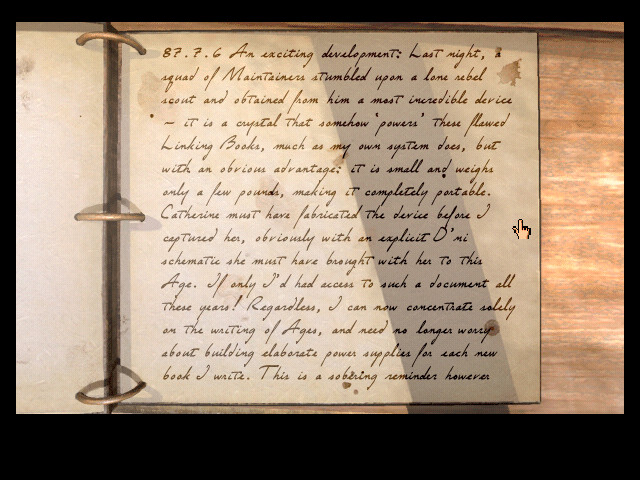 87.7.6 An exciting development: Last night, a
squad of Maintainers stumbled upon a lone rebel
scout and obtained from him a most incredible device
– it is a crystal that somehow 'powers' these flawed
Linking Books, much as my own system does, but
with an obvious advantage: it is small and weighs
only a few pounds, making it completely portable.
Catherine must have fabricated the device before I
captured her, obviously with an explicit D'ni
schematic she must have brought with her to this
Age. If only I'd had access to such a document all
these years! Regardless, I can now concentrate solely
on the writing of Ages, and need no longer worry
about building elaborate power supplies for each new
book I write. This is a sobering reminder however